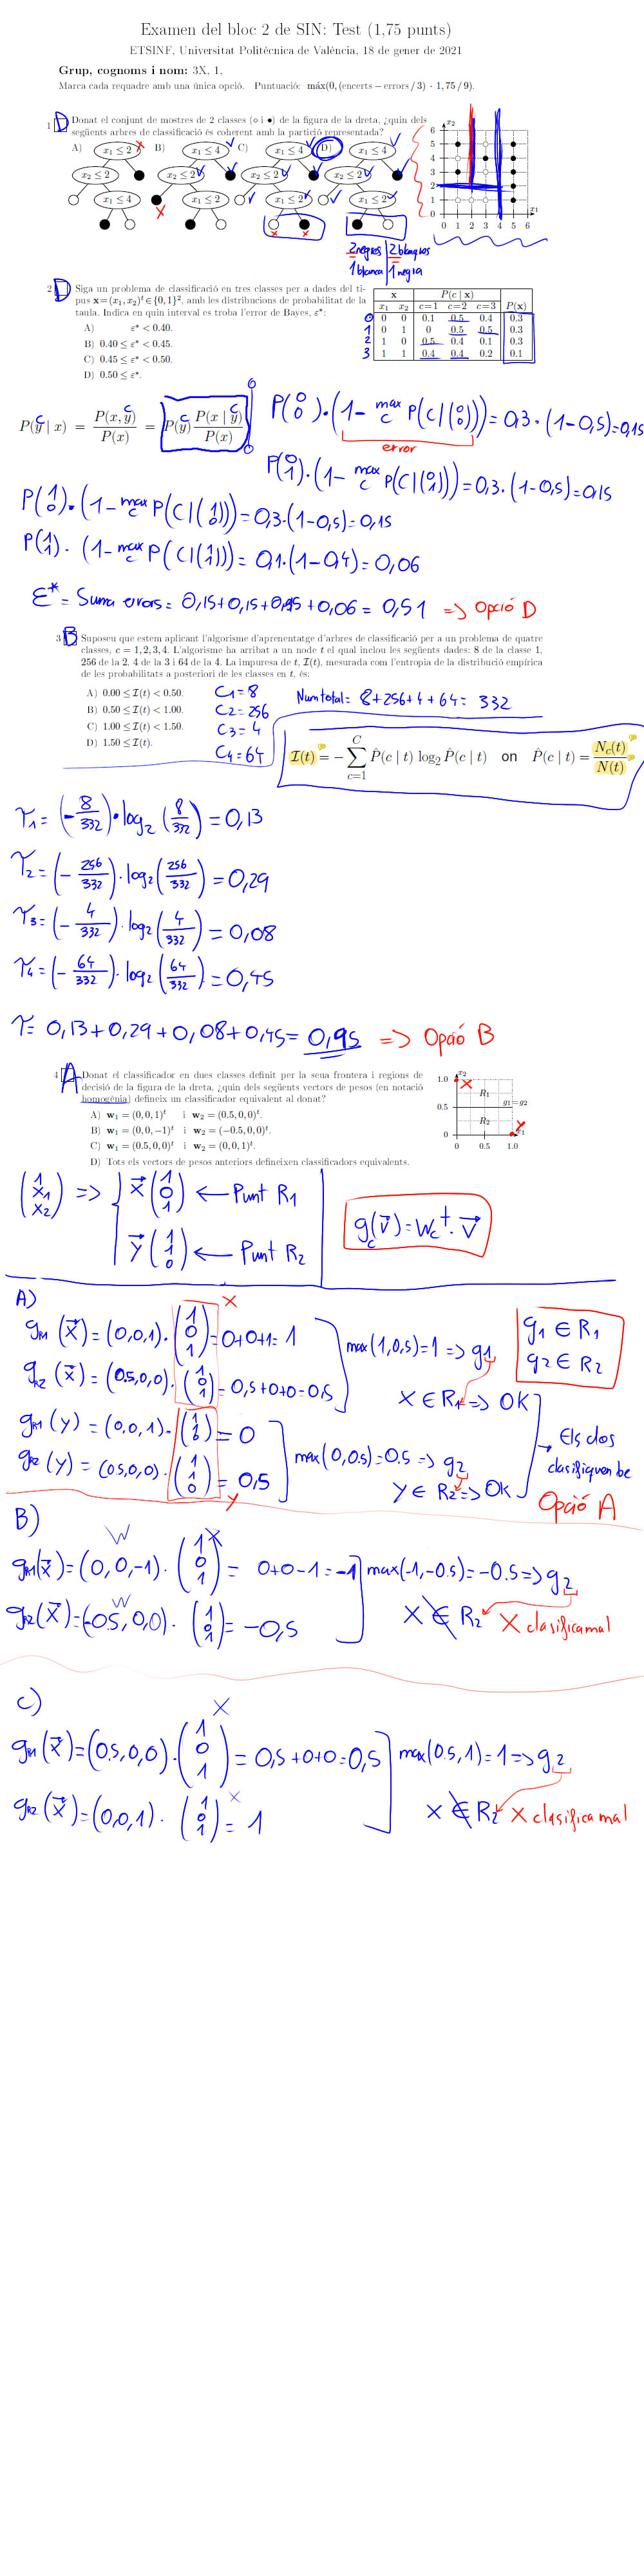 Examen del bloc 2 de SIN: Test (1,75 punts)
ETSINF, Universitat Politècnica de València, 18 de gener de 2021
Grup, cognoms i nom: 3X, 1,
Marca cada requadre amb una única opció. Puntuació: máx(0, (encerts − errors / 3) · 1,75 / 9).
1 D Donat el conjunt de mostres de 2 classes (○ i ●) de la figura de la dreta, ¿quin dels
següents arbres de classificació és coherent amb la partició representada?
A) x₁ ≤ 2 B) x₁ ≤ 4 C) x₁ ≤ 4 D) x₁ ≤ 4
x₂ ≤ 2 x₂ ≤ 2 x₂ ≤ 2 x₂ ≤ 2
x₁ ≤ 4 x₁ ≤ 2 x₁ ≤ 2 x₁ ≤ 2
x₂
6
5
4
3
2
1
0
0 1 2 3 4 5 6 x₁
2 negres | 2 blanques
1 blanca | 1 negra
2 D Siga un problema de classificació en tres classes per a dades del ti-
pus x = (x₁, x₂)ᵗ ∈ {0, 1}², amb les distribucions de probabilitat de la
taula. Indica en quin interval es troba l'error de Bayes, ε*:
A) ε* < 0.40.
B) 0.40 ≤ ε* < 0.45.
C) 0.45 ≤ ε* < 0.50.
D) 0.50 ≤ ε*.
x P(c | x)
x₁ x₂ c=1 c=2 c=3 P(x)
0 0 0 0.1 0.5 0.4 0.3
1 0 1 0 0.5 0.5 0.3
2 1 0 0.5 0.4 0.1 0.3
3 1 1 0.4 0.4 0.2 0.1
P(y | x) = P(x, y) / P(x) = P(y) P(x | y) / P(x)
c c c c
P(0 0) · (1 − max c P(C | (0 0))) = 0,3 · (1−0,5) = 0,15
error
P(0 1) · (1 − max c P(C | (0 1))) = 0,3 · (1−0,5) = 0,15
P(1 0) · (1 − max c P(C | (1 0))) = 0,3 · (1−0,5) = 0,15
P(1 1) · (1 − max c P(C | (1 1))) = 0,1 · (1−0,4) = 0,06
ε* = Suma errors = 0,15 + 0,15 + 0,15 + 0,06 = 0,51 => Opció D
3 B Suposeu que estem aplicant l'algorisme d'aprenentatge d'arbres de classificació per a un problema de quatre
classes, c = 1, 2, 3, 4. L'algorisme ha arribat a un node t el qual inclou les següents dades: 8 de la classe 1,
256 de la 2, 4 de la 3 i 64 de la 4. La impuresa de t, I(t), mesurada com l'entropia de la distribució empírica
de les probabilitats a posteriori de les classes en t, és:
A) 0.00 ≤ I(t) < 0.50.
B) 0.50 ≤ I(t) < 1.00.
C) 1.00 ≤ I(t) < 1.50.
D) 1.50 ≤ I(t).
C₁ = 8
C₂ = 256
C₃ = 4
C₄ = 64
Num total = 8 + 256 + 4 + 64 = 332
I(t) = − ∑ c=1 C P̂(c | t) log₂ P̂(c | t) on P̂(c | t) = N_c(t) / N(t)
I₁ = (− 8/332) · log₂ (8/332) = 0,13
I₂ = (− 256/332) · log₂ (256/332) = 0,29
I₃ = (− 4/332) · log₂ (4/332) = 0,08
I₄ = (− 64/332) · log₂ (64/332) = 0,45
I = 0,13 + 0,29 + 0,08 + 0,45 = 0,95 => Opció B
4 A Donat el classificador en dues classes definit per la seua frontera i regions de
decisió de la figura de la dreta, ¿quin dels següents vectors de pesos (en notació
homogènia) defineix un classificador equivalent al donat?
A) w₁ = (0, 0, 1)ᵗ i w₂ = (0.5, 0, 0)ᵗ.
B) w₁ = (0, 0, −1)ᵗ i w₂ = (−0.5, 0, 0)ᵗ.
C) w₁ = (0.5, 0, 0)ᵗ i w₂ = (0, 0, 1)ᵗ.
D) Tots els vectors de pesos anteriors defineixen classificadors equivalents.
x₂
1.0 x
R₁
0.5 g₁=g₂
R₂ y
0 x₁
0 0.5 1.0
(1 x₁ x₂) => x⃗ (1 0 1) ← Punt R₁
y⃗ (1 1 0) ← Punt R₂
g_c(v⃗) = w_cᵗ · v⃗
A)
x
g_R1 (x⃗) = (0,0,1) · (1 0 1) = 0+0+1 = 1
g_R2 (x⃗) = (0.5,0,0) · (1 0 1) = 0,5+0+0 = 0,5
max(1, 0,5) = 1 => g₁
X ∈ R₁ => OK
g₁ ∈ R₁
g₂ ∈ R₂
g_R1 (y) = (0,0,1) · (1 1 0) = 0
g_R2 (y) = (0.5,0,0) · (1 1 0) = 0,5
y
max(0, 0.5) = 0.5 => g₂
Y ∈ R₂ => OK
→ Els dos
clasifiquen be
Opció A
B)
W x
g_R1(x⃗) = (0, 0, −1) · (1 0 1) = 0+0−1 = −1
W
g_R2(x⃗) = (−0.5, 0, 0) · (1 0 1) = −0,5
max(−1, −0.5) = −0.5 => g₂
X ∉ R₂ X clasifica mal
C)
x
g_R1 (x⃗) = (0.5, 0, 0) · (1 0 1) = 0,5 + 0+0 = 0,5
x
g_R2 (x⃗) = (0,0,1) · (1 0 1) = 1
max(0.5, 1) = 1 => g₂
X ∉ R₂ X clasifica mal